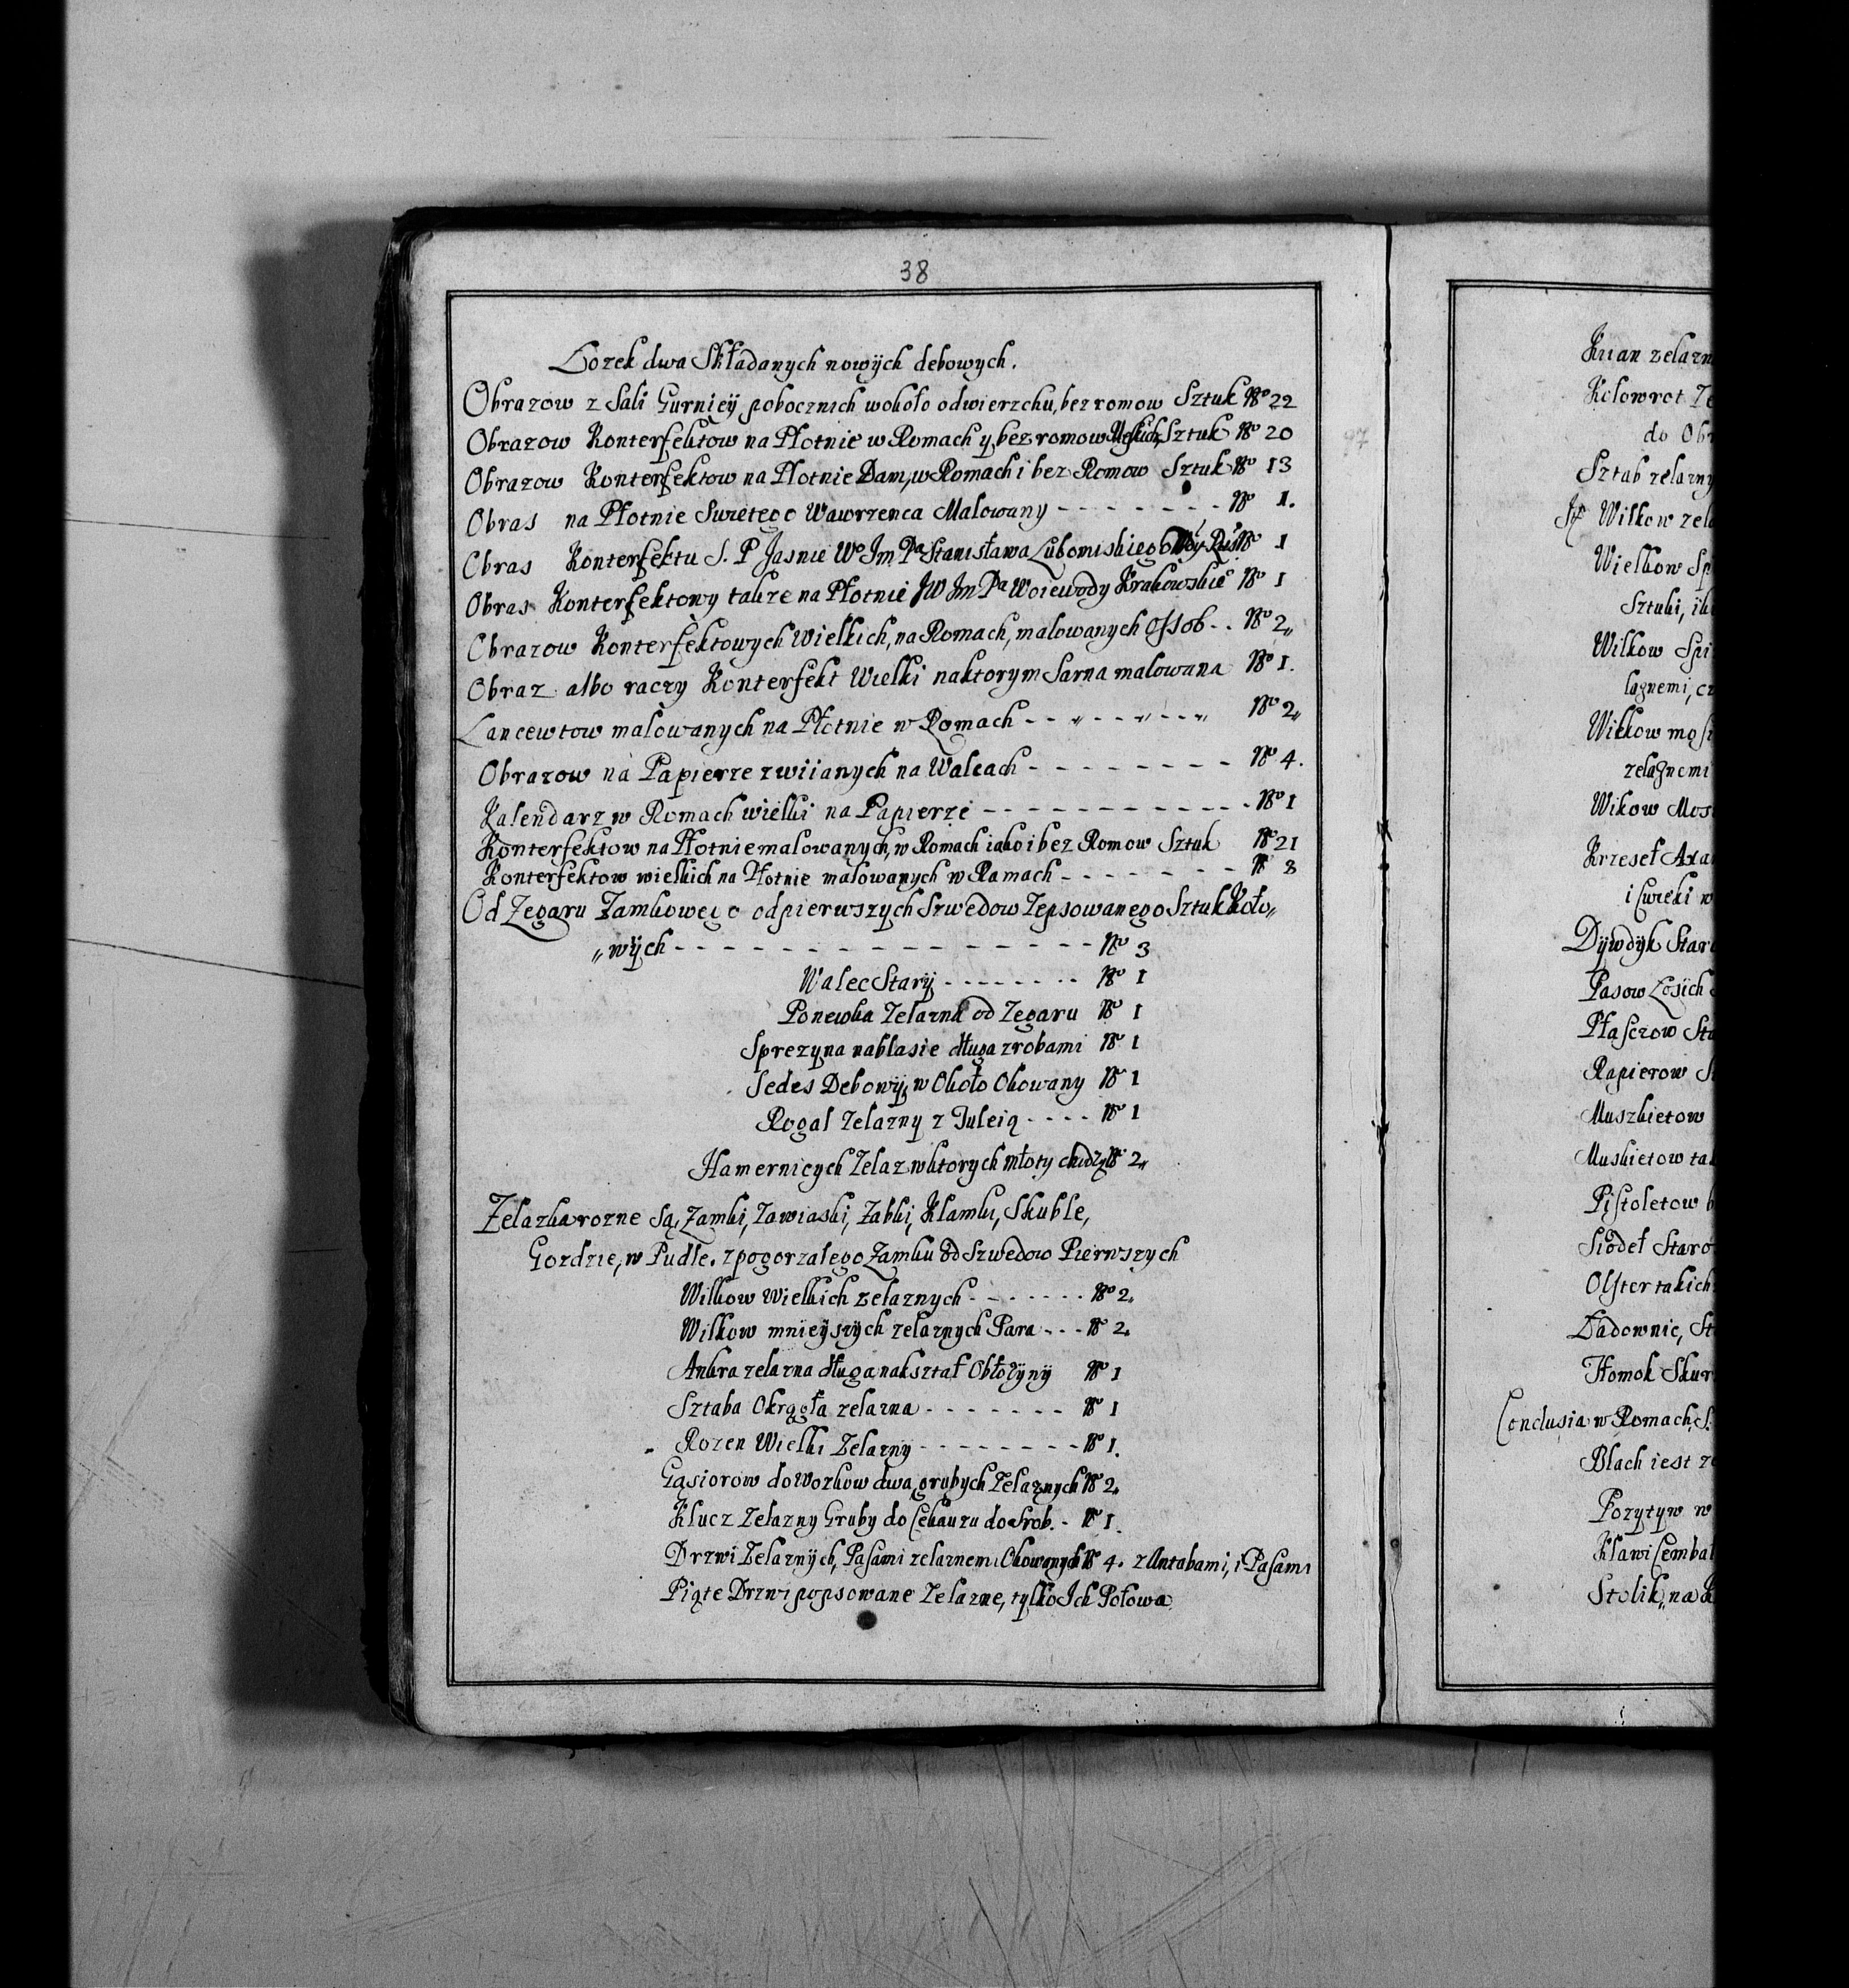 38
Lozek dwa Składanych nowÿch debowych.
Obrazow z Sali Gurniey pobocznich wokoło odwierzchu, bez romow Sztuk No 22
Obrazow Konterfektow na Płotnie w Romach y bez romow Meskich, Sztuk No 20
Obrazow Konterfektow na Płotnie Dam, w Romach i bez Romow Sztuk No 13
Obras na Płotnie Swietego Wawrzenca Malowany - - - - - - - No 1.
Obras Konterfektu S. P Jasnie Wo Im Pa Stanisława Lubomiskiego No 1
Obras Konterfektowy takze na Płotnie JW Im Pa Woiewody Krakowskie No 1
Obrazow Konterfektowych Wielkich, na Romach, malowanych Ossob . . No 2„
Obraz albo raczy Konterfekt Wielki naktorym Sarna malowana No 1.
Lancewtow malowanych na Płotnie w Romach - - „ - - „ - - „ No 2„
Obrazow na Papierze zwiianych na Walcach - - - - - - - - No 4.
Kalendarz w Romach wielki na Papierze - - - - - - - - - - - No 1
Konterfektow na Płotnie malowanych, w Romach iako i bez Romow Sztuk No 21
Konterfektow wielkich na Płotnie malowanych w Ramach - - - - - - - No 8
Od Zegaru Zamkowego odpierwszych Szwedow Zepsowanego Sztuk Koło„
„wÿch - - - - - - - - - - - - - - - - No 3
Walec Starÿ - - - - - - - No 1
Ponewka Zelazna od Zegaru No 1
Sprezyna nablasie długa zrobami No 1
Sedes Debowÿ, w Około Okowany No 1
Rogal Zelazny z Tuleią - - - - No 1
Hamernicych Zelaz wktorych młoty chodzą No 2„
Zelazka rozne są, Zamki, Zawiaski, Zabki, Klamki, Skuble,
Gozdzie, w Pudle. z pogorzałego Zamku od Szwedow Pierwszych
Wilkow Wielkich zelaznych - - - - - - - No 2„
Wilkow mnieÿszÿch zelaznych Para - - - No 2.
Ankra zelazna długa, nakształ Obłożyny No 1
Sztaba Okrągła zelazna - - - - - - - No 1
Rozen Wielki Zelazny - - - - - - - - No 1.
Gąsiorow do Wozkow dwa, grubych Zelaznych No 2„
Klucz Zelazny Gruby do Cekauzu do Srob. - No 1.
Drzwi Zelaznÿch, Pasami zelaznemi Okowanych No 4. z Antabami, i Pasami
Piąte Drzwi popsowane Zelazne, tylko Ich Połowa
97
Kolowrot Ze
do Ob
Sztab zelazny
Wilkow zel
Wielkow Sp
Sztuki, ik
Wilkow Spi
Wilkow mosi
zelaznemi
Wikow Mos
Krzeseł Axa
i Cwieki w
Dÿwdÿk Star
Pasow Łosich
Płaszczow Sta
Rapierow S
Muszkietow
Muskietow ta
Pistoletow b
Siodeł Staro
Olster takich
Ładownic, St
Tłomok Skur
Conclusia w Romach, S.
Blach iest ze
Pozytyw w
Klawicembal
Stolik, na